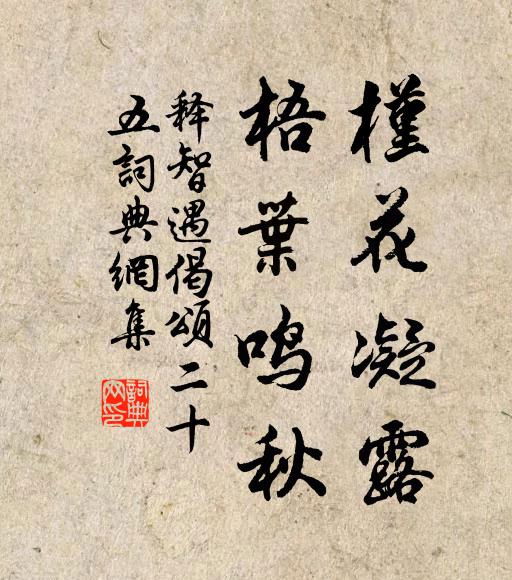 槿花凝露
梧葉鸣秋
释智遇偈頌二十
五詞典網集
詞典网印